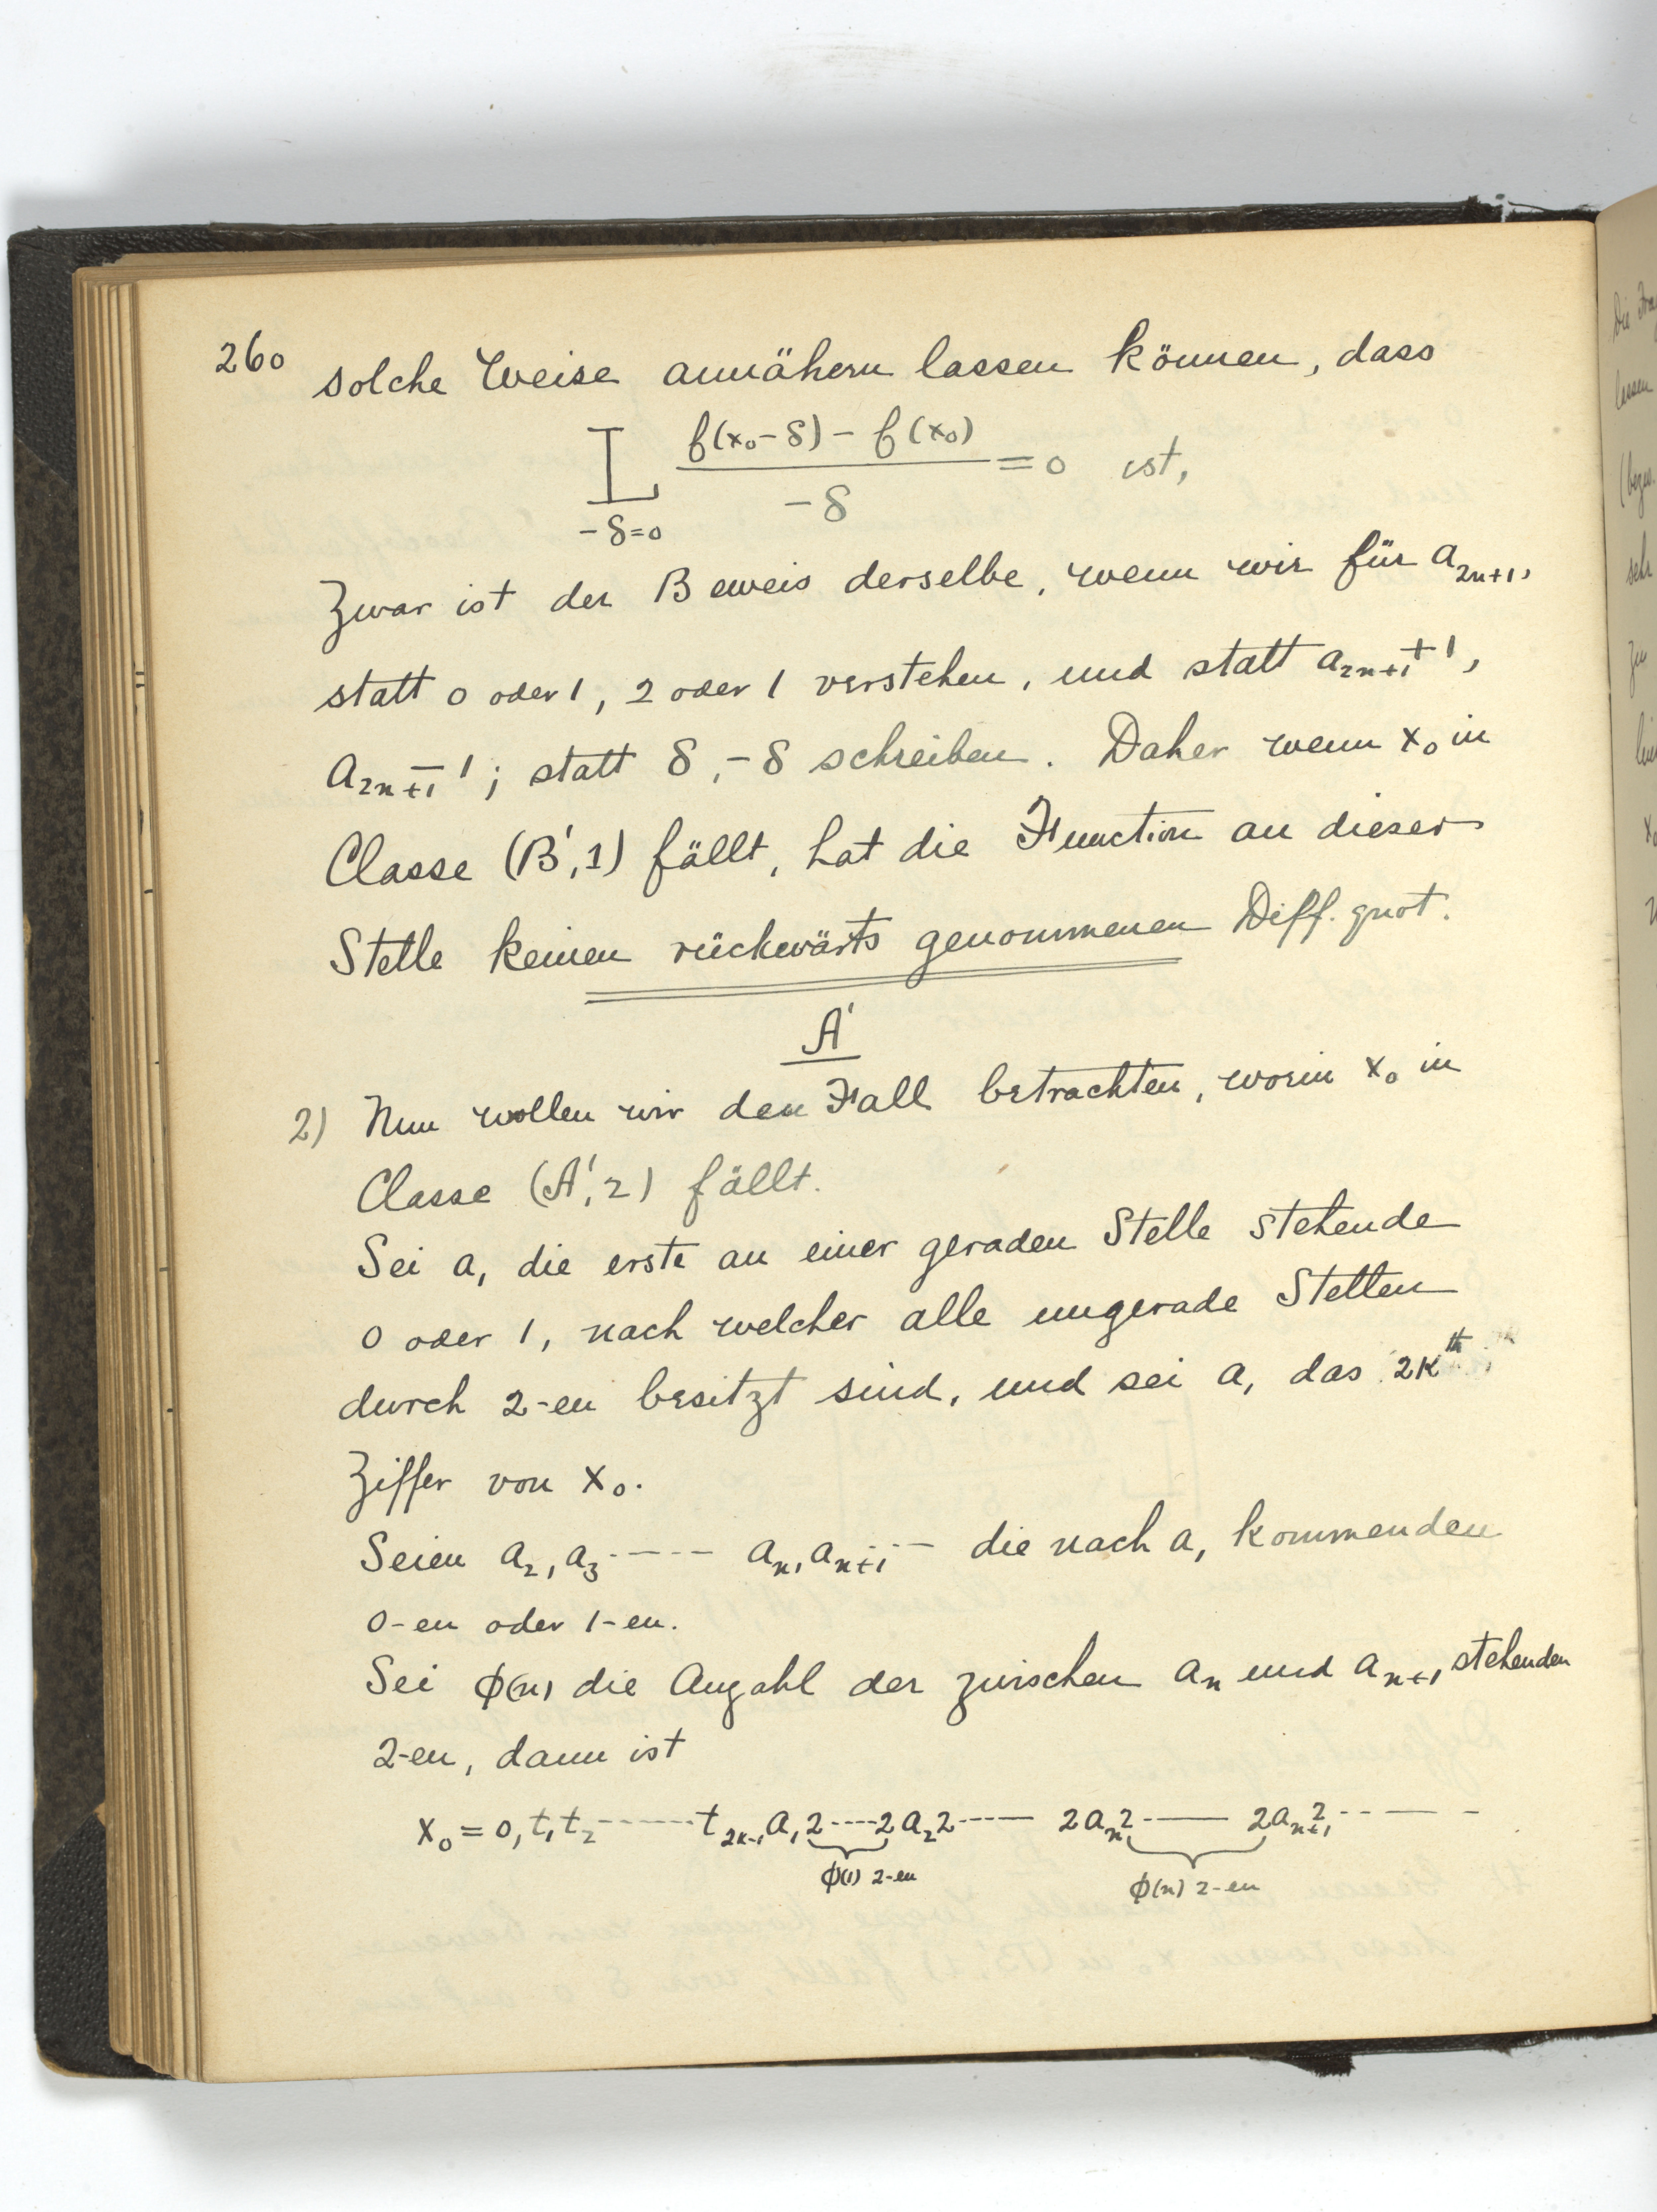 260 solche Weise annähern lassen können, dass
L_{-δ=0} (f(x₀-δ) - f(x₀)) / -δ = 0 ist,
Zwar ist der Beweis derselbe, wenn wir für a_{2n+1},
statt 0 oder 1, 2 oder 1 verstehen, und statt a_{2n+1}+1,
a_{2n+1}-1; statt δ, -δ schreiben. Daher wenn x₀ in
Classe (B', 1) fällt, hat die Function an dieser
Stelle keinen rückwärts genommenen Diff. quot.
A'
2) Nun wollen wir den Fall betrachten, worin x₀ in
Classe (A', 2) fällt.
Sei a₁ die erste an einer geraden Stelle stehende
0 oder 1, nach welcher alle ungerade Stellen
durch 2-en besitzt sind, und sei a₁ das 2k^{th}
Ziffer von x₀.
Seien a₂, a₃ ---- a_n, a_{n+1} -- die nach a₁ kommenden
0-en oder 1-en.
Sei ϕ(n) die Anzahl der zwischen a_n und a_{n+1} stehenden
2-en, dann ist
x₀ = 0, t₁ t₂ ------ t_{2k-1} a₁ 2 ---- 2 a₂ 2 ---- 2 a_n 2 ---- 2 a_{n+1} 2 -----
ϕ(1) 2-en ϕ(n) 2-en